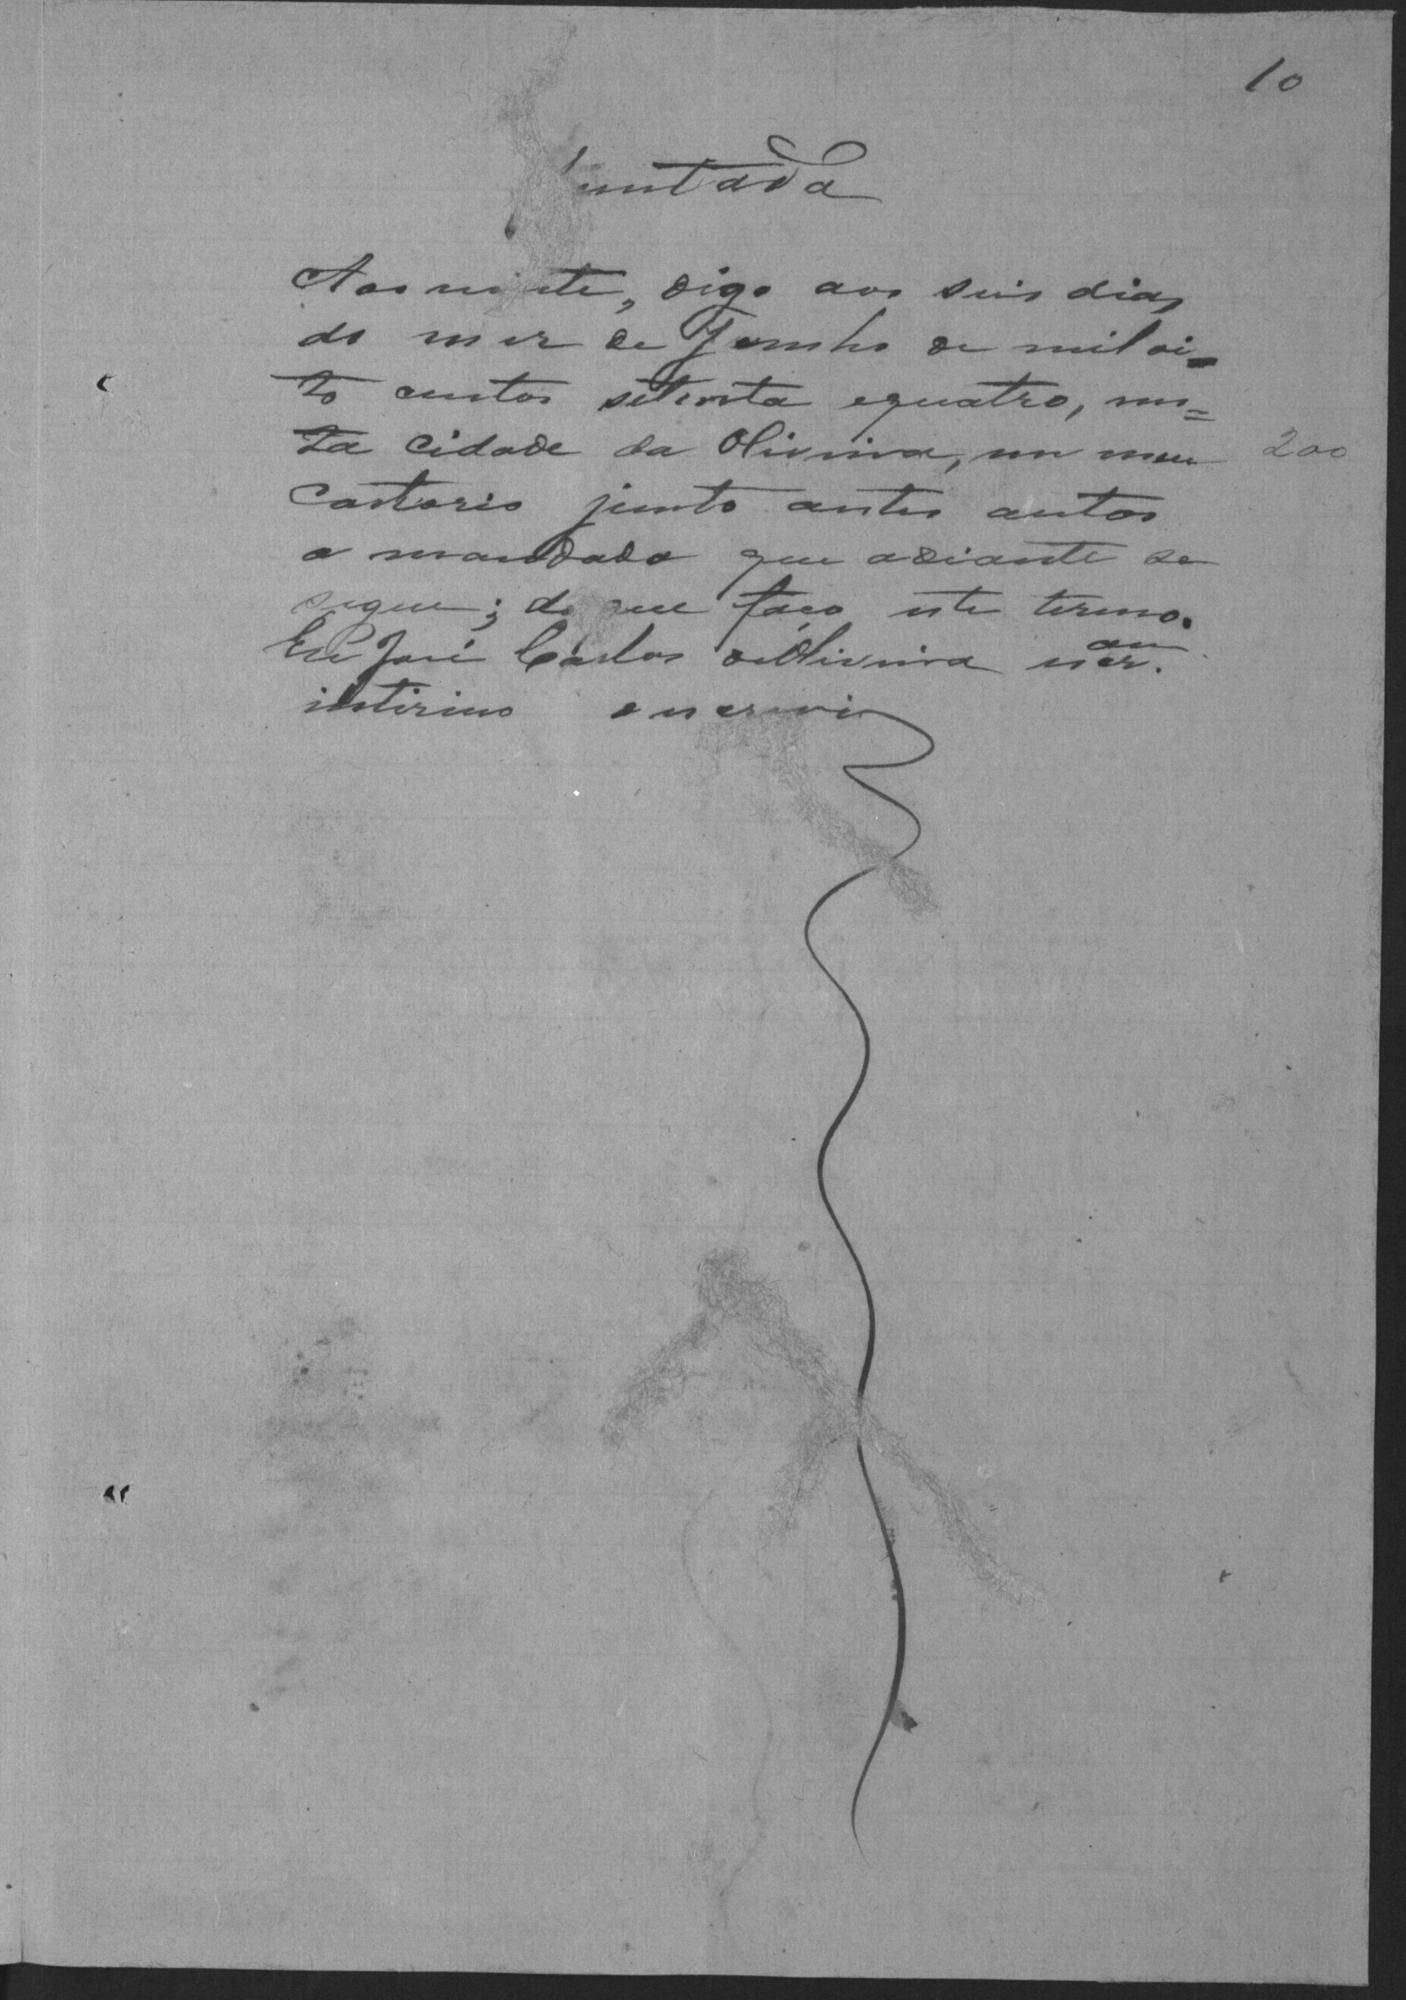 10
Juntada
Aos vinte, digo aos seis dias
do mez de Junho de mil oi-
to centos setenta equatro, nes=
ta cidade da Oliveira, em meu 200
Cartorio junto a estes autos
o mandado que adiante se
segue; do que faço este termo.
Eu José Carlos deOliveira escr.am
interino o escrevi